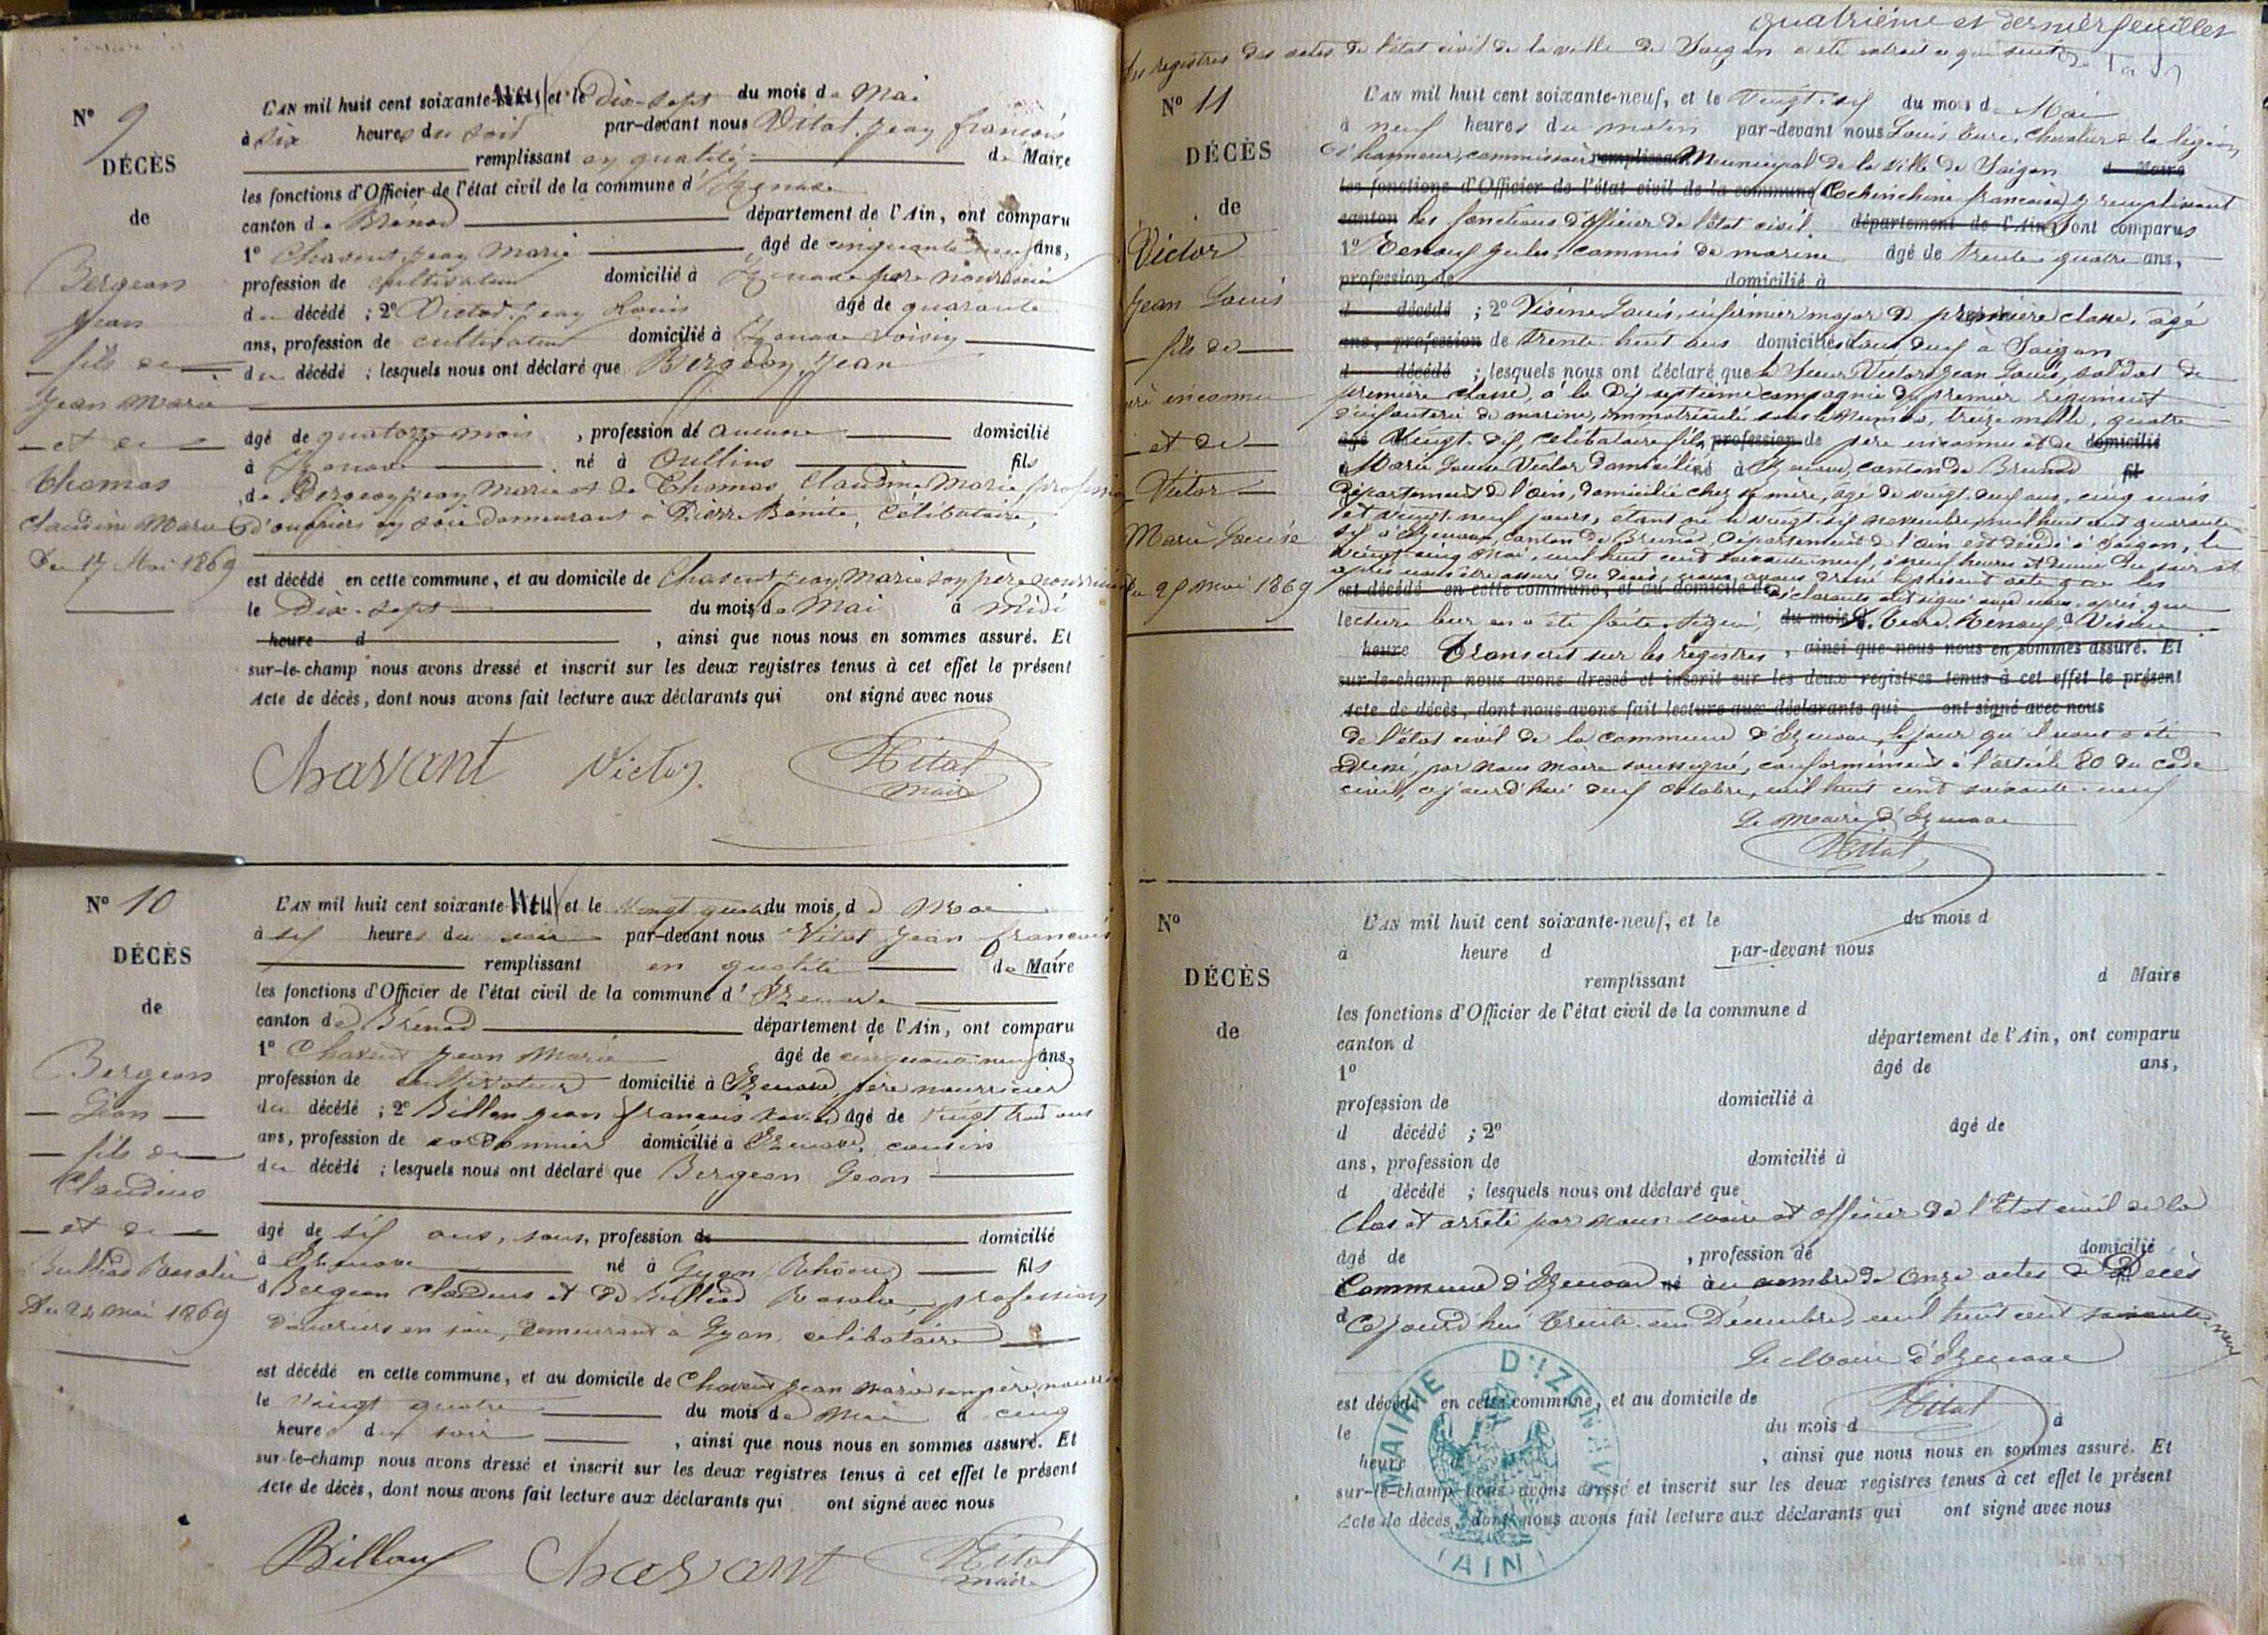 Nº 9
DÉCÈS
de
Bergeon
Jean
fils de
Jean Marie
et de
Thomas
Claudine Marie
Du 17 Mai 1869
L'AN mil huit cent soixante-Neuf et le dix-sept du mois de Mai
à six heures du soir par-devant nous Vital Jean François
remplissant en qualité de Maire
les fonctions d'Officier de l'état civil de la commune d'Izenave
canton de Brénod département de l'Ain, ont comparu
1º Chavent Jean Marie âgé de cinquante neuf ans,
profession de cultivateur domicilié à Izenave père nourricier
du décédé ; 2º Victor Jean Louis âgé de quarante
ans, profession de cultivateur domicilié à Izenave voisin
du décédé ; lesquels nous ont déclaré que Bergeon Jean
âgé de quatorze mois , profession de aucune domicilié
à Izenave né à Oullins fils
de Bergeon Jean Marie et de Thomas Claudine Marie, profession
d'ouvriers en soie demeurant à Pierre Bénite, Célibataire,
est décédé en cette commune, et au domicile de Chavent Jean Marie son père nourricier
le Dix-sept du mois de Mai à midi
heure d , ainsi que nous nous en sommes assuré. Et
sur-le-champ nous avons dressé et inscrit sur les deux registres tenus à cet effet le présent
Acte de décès, dont nous avons fait lecture aux déclarants qui ont signé avec nous
Chavant Victor Vital
maire
Nº 10
DÉCÈS
de
Bergeon
Jean
fils de
Claudius
et de
Bulliod Rosalie
Du 24 mai 1869
L'AN mil huit cent soixante-Neuf et le vingt quatre du mois de Mai
à six heures du soir par-devant nous Vital Jean François
remplissant en qualité de Maire
les fonctions d'Officier de l'état civil de la commune d'Izenave
canton de Brénod département de l'Ain, ont comparu
1º Chavent Jean Marie âgé de cinquante neuf ans,
profession de cultivateur domicilié à Izenave, père nourricier
du décédé ; 2º Billon Jean François âgé de vingt trois ans
ans, profession de cordonnier domicilié à Izenave, cousin
du décédé ; lesquels nous ont déclaré que Bergeon Jean
âgé de six ans, sans, profession de domicilié
à Izenave né à Lyon (Rhône) fils
d Bergeon Claudius et de Bulliod Rosalie, profession
d'ouvriers en soie, demeurant à Lyon, célibataire
est décédé en cette commune, et au domicile de Chavent Jean Marie son père nourri
le vingt quatre du mois de Mai à cinq
heures du soir , ainsi que nous nous en sommes assuré. Et
sur-le-champ nous avons dressé et inscrit sur les deux registres tenus à cet effet le présent
Acte de décès, dont nous avons fait lecture aux déclarants qui ont signé avec nous
Billon Chavant Vital
maire
quatrième et dernier feuillet
Des registres des actes de l'état civil de la ville de Saigon a été extrait ce qui suit
Nº 11
DÉCÈS
de
Victor
Jean Louis
fils de
père inconnu
et de
Victor
Marie Louise
Du 25 mai 1869
L'AN mil huit cent soixante-neuf, et le vingt-six du mois de Mai
à neuf heures du matin par-devant nous Louis Eure, Chevalier de la légion
d'honneur, commissaire remplissant Municipal de la ville de Saigon d Maire
les fonctions d'Officier de l'état civil de la commune (Cochinchine française) y remplissant
canton les fonctions d'officier de l'état civil. département de l'Ain, ont comparus
1º Renouf Jules, commis de marine âgé de trente quatre ans,
profession de domicilié à
d décédé ; 2º Visine Louis, infirmier major de première classe, âgé
ans, profession de trente huit ans domiciliés tous deux à Saigon
d décédé ; lesquels nous ont déclaré que le Sieur Victor Jean Louis, soldat de
première classe, à la dix septième compagnie du premier régiment
d'infanterie de marine, immatriculé sous le numéro, treize mille, quatre
âgé vingt-dix, célibataire fils profession de père inconnu et de domicilié
à Marie Louise Victor domiciliée né à Izenave, canton de Brénod fil
Département de l'Ain, domicilié chez sa mère, âgé de vingt-deux ans, cinq mois
et vingt-neuf jours, étant né le vingt-six novembre mil huit cent quarante
six à Izenave, canton de Brénod, Département de l'ain est décédé à Saigon, le
vingt-cinq Mai, mil huit cent soixante neuf, à neuf heures et demie du soir et
après nous être assuré du décès, nous avons dressé le présent acte que les
est décédé en cette commune, et au domicile de déclarants ont signé avec nous après que
lecture leur en a été faite. Signé, du mois L. Eure, Renouf, à Visine
heure Transcrit sur les registres , ainsi que nous nous en sommes assuré. Et
sur-le-champ nous avons dressé et inscrit sur les deux registres tenus à cet effet le présent
Acte de décès, dont nous avons fait lecture aux déclarants qui ont signé avec nous
de l'état civil de la commune d'Izenave, le jour qu'il nous a été
adressé, par nous maire soussigné, conformément à l'article 80 du code
civil, ce jourd'hui deux octobre, mil huit cent soixante-neuf
Le Maire d'Izenave
Vital
Nº
DÉCÈS
de
L'AN mil huit cent soixante-neuf, et le du mois d
à heure d par-devant nous
remplissant d Maire
les fonctions d'Officier de l'état civil de la commune d
canton d département de l'Ain, ont comparu
1º âgé de ans,
profession de domicilié à
d décédé ; 2º âgé de
ans, profession de domicilié à
d décédé ; lesquels nous ont déclaré que
Clos et arrêté par nous maire et officier de l'Etat civil de la
âgé de , profession de domicilié
Commune d'Izenave né à au nombre de Onze actes de Décès
d Ce jourd'hui trente-un Décembre, mil huit cent soixante-neuf
Le Maire d'Izenave
est décédé en cette commune, et au domicile de Vital
le du mois d à
heure d , ainsi que nous nous en sommes assuré. Et
sur-le-champ nous avons dressé et inscrit sur les deux registres tenus à cet effet le présent
Acte de décès, dont nous avons fait lecture aux déclarants qui ont signé avec nous
MAIRIE D'IZENAVE
(AIN)